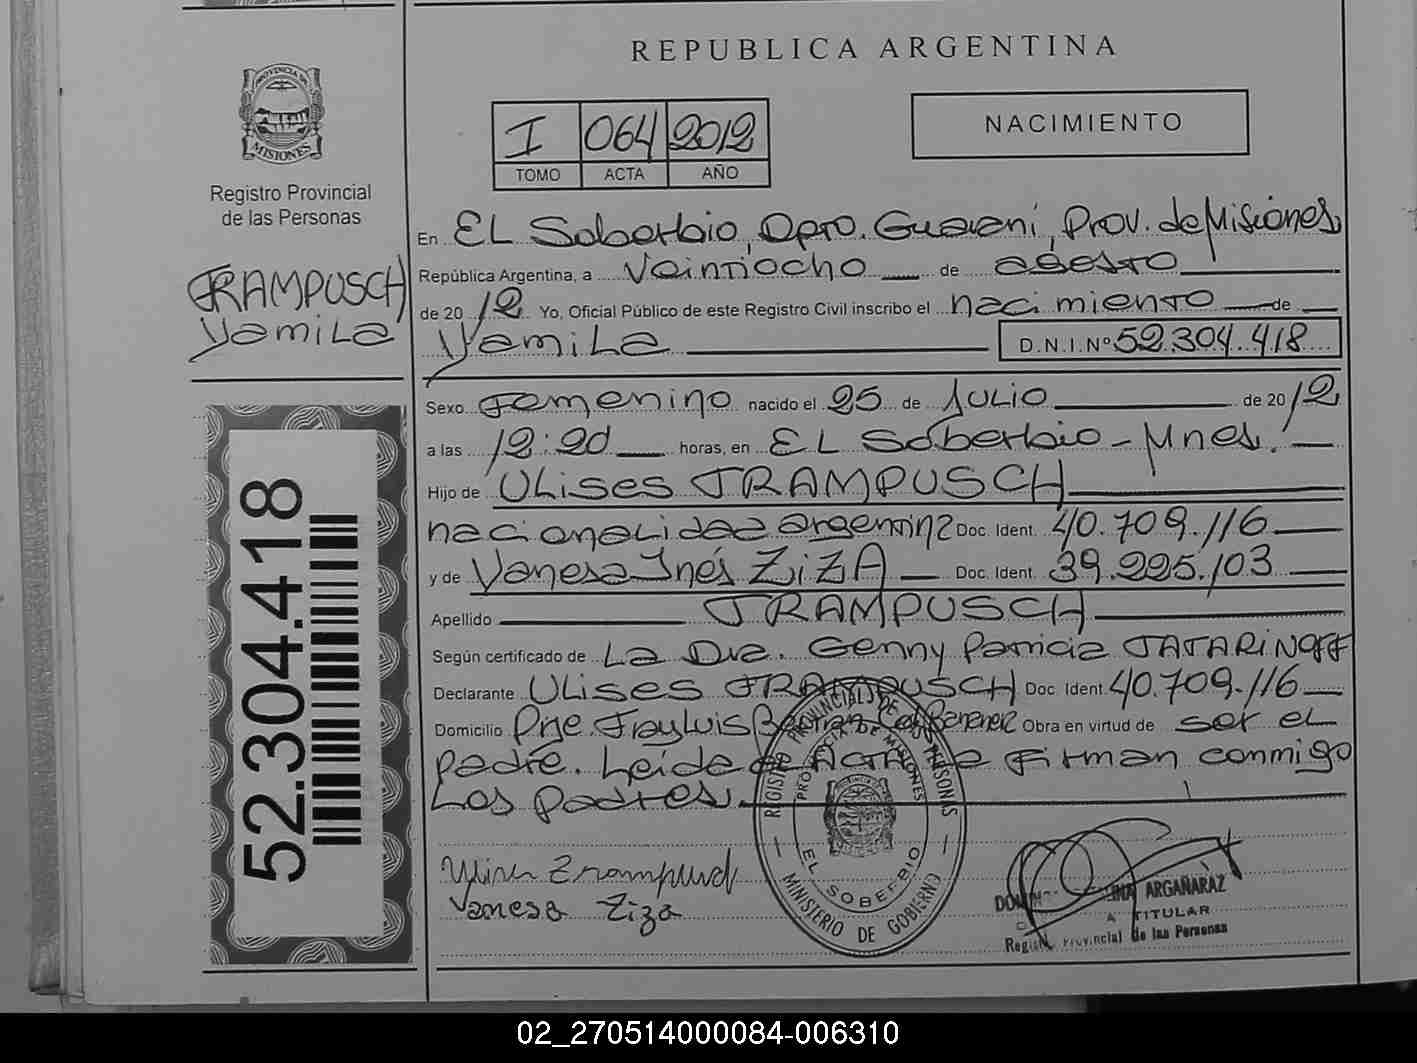 REPUBLICA ARGENTINA
PROVINCIA DE
MISIONES
Registro Provincial
de las Personas
I 064 2012
TOMO ACTA AÑO
NACIMIENTO
TRAMPUSCH
Yamila
52.304.418
En EL Soberbio, Dpto. Guaraní, Prov. de Misiones,
República Argentina, a veintiocho de agosto
de 20 12 Yo, Oficial Público de este Registro Civil inscribo el nacimiento de
Yamila D.N.I.Nº 52.304.418
Sexo Femenino nacido el 25 de Julio de 20 12
a las 12:20 horas, en EL Soberbio - Mnes.
Hijo de Ulises TRAMPUSCH
nacionalidad argentina Doc. Ident. 40.709.116
y de Vanesa Inés ZiZA Doc. Ident. 39.225.103
Apellido TRAMPUSCH
Según certificado de La Dra. Genny Patricia TATARiNOFF
Declarante Ulises TRAMPUSCH Doc. Ident. 40.709.116
Domicilio Pje. Fray Luis Beltran Obra en virtud de ser el
padre. Leída el Acta la firman conmigo
Los padres.
REGISTRO PROVINCIAL DE LAS PERSONAS
PROVINCIA DE MISIONES
EL SOBERBIO
MINISTERIO DE GOBIERNO
Vanesa Ziza
ARGAÑARAZ
TITULAR
Registro Provincial de las Personas
02_270514000084-006310